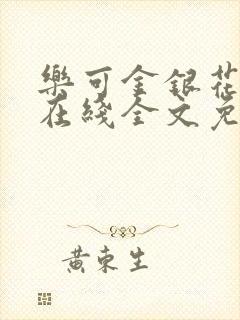 樂可金銀花
在綫全文免
黄東生